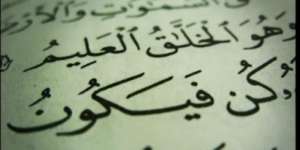 السَّمَٰوَٰتِ وَالْأَرْ
وَهُوَ ٱلْخَلَّٰقُ ٱلْعَلِيمُ
كُن فَيَكُونُ